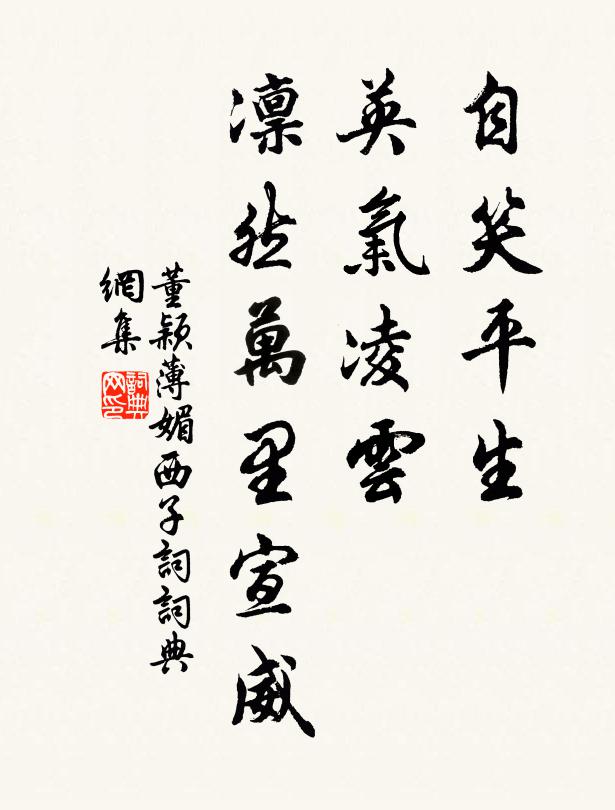 自笑平生
英氣凌雲
凜然萬里宣威
董穎薄媚西子詞詞典
網集
詞典
网印